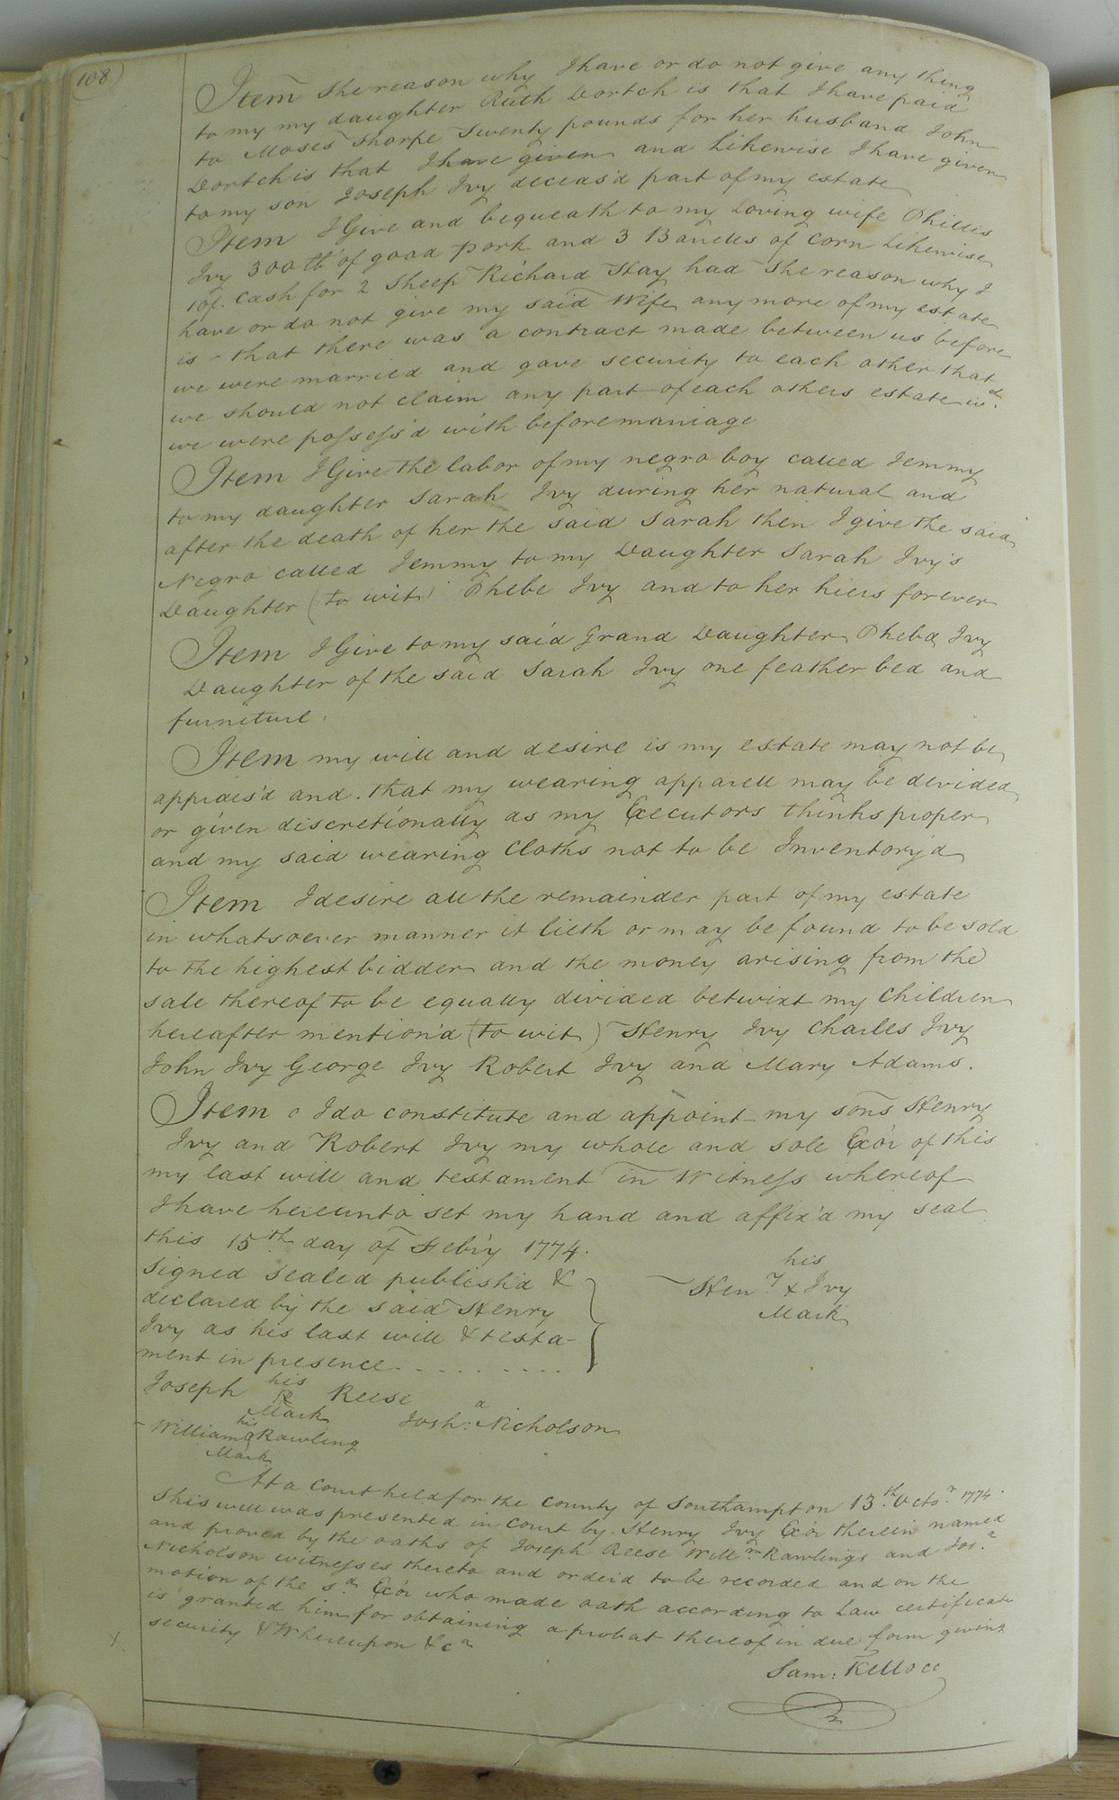 108
Item The reason why I have or do not give any thing
to my my daughter Ruth Dortch is that I have paid
to Moses Tharpe Twenty pounds for her husband John
Dortch is that I have given and Likewise I have given
to my son Joseph Ivy deceas'd part of my estate
Item I Give and bequeath to my Loving wife Phillis
Ivy 300 lb of good pork and 3 Barrels of Corn Likewise
10/. Cash for 2 Sheep Richard Hay had The reason why I
have or do not give my said Wife any more of my estate
is that there was a contract made between us before
we were married and gave security to each other that
we should not claim any part of each others estate wd.
we were possess'd with before marriage
Item I Give the labor of my negro boy called Jemmy
to my daughter Sarah Ivy during her natural and
after the death of her the said Sarah then I give the said
Negro called Jemmy to my Daughter Sarah Ivy's
Daughter (to wit) Phebe Ivy and to her hiers forever
Item I Give to my said Grand Daughter Pheba Ivy
Daughter of the said Sarah Ivy one feather bed and
furniture.
Item my will and desire is my estate may not be
apprais'd and. that my wearing apparell may be devided
or given discretionally as my Executors thinks proper
and my said wearing Cloths not to be Inventory'd
Item I desire all the remainder part of my estate
in whatsoever manner it lieth or may be found to be sold
to the highest bidder and the money arising from the
sale thereof to be equally divided betwixt my Children
hereafter mention'd (to wit) Henry Ivy Charles Ivy
John Ivy George Ivy Robert Ivy and Mary Adams.
Item I do constitute and appoint my sons Henry
Ivy and Robert Ivy my whole and sole Exor of this
my last will and testament in Witness whereof
I have hereunto set my hand and affix'd my seal
this 15th day of Feb'y 1774.
his
Signed Sealed publish'd & Heny + Ivy
declared by the said Henry Mark
Ivy as his last will & testa-
ment in presence
his
Joseph R Reese
Mark Josha: Nicholson
his
William Rawling
Mark
At a Court held for the County of Southampton 13th. Octor. 1774.
This will was presented in Court by Henry Ivy Exor therein named
and proved by the oaths of Joseph Reese Willm. Rawlings and Josa.
Nicholson witnesses thereto and order'd to be recorded and on the
motion of the sd. Exor who made oath according to Law certificate
is granted him for obtaining a probat thereof in due form giving
security & Whereupon &ca
Sam: Kello CC